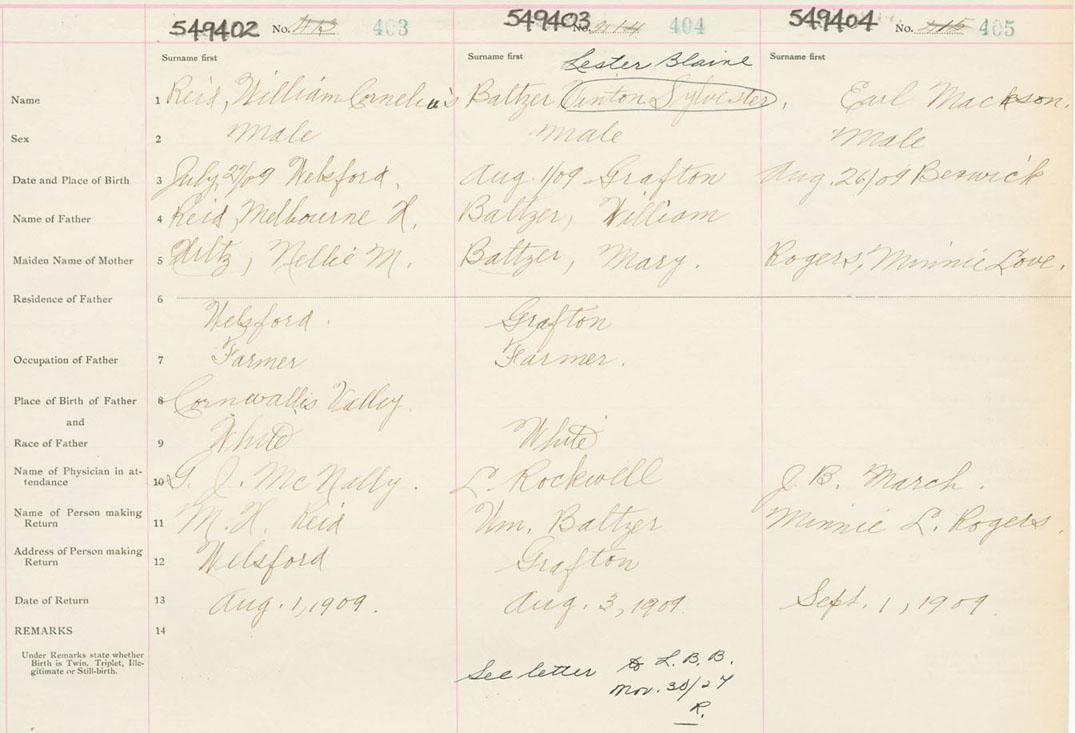 549402 No. 403 549403 No. 404 549404 No. 405
Surname first Surname first Lester Blaine Surname first
Name 1 Reid, William Cornelius Baltzer Vinton Sylvester, Earl Mackson.
Sex 2 Male Male Male
Date and Place of Birth 3 July, 27/09 Welsford. Aug. 1/09 Grafton Aug. 26/09 Berwick
Name of Father 4 Reid, Melbourne H. Baltzer, William
Maiden Name of Mother 5 Hiltz, Nellie M. Baltzer, Mary. Rogers, Minnie Love.
Residence of Father 6
Welsford. Grafton
Occupation of Father 7 Farmer Farmer.
Place of Birth of Father 8 Cornwallis Valley.
and
Race of Father 9 White White
Name of Physician in at-
tendance 10 G. J. McNally. L. Rockwell J. B. March.
Name of Person making
Return 11 M. H. Reid Wm. Baltzer Minnie L. Rogers.
Address of Person making
Return 12 Welsford Grafton
Date of Return 13 Aug. 1, 1909. Aug. 3, 1909 Sept. 1, 1909.
REMARKS 14
Under Remarks state whether
Birth is Twin, Triplet, Ille-
gitimate or Still-birth.
See letter to L. B. B.
Nov. 30/27
R.